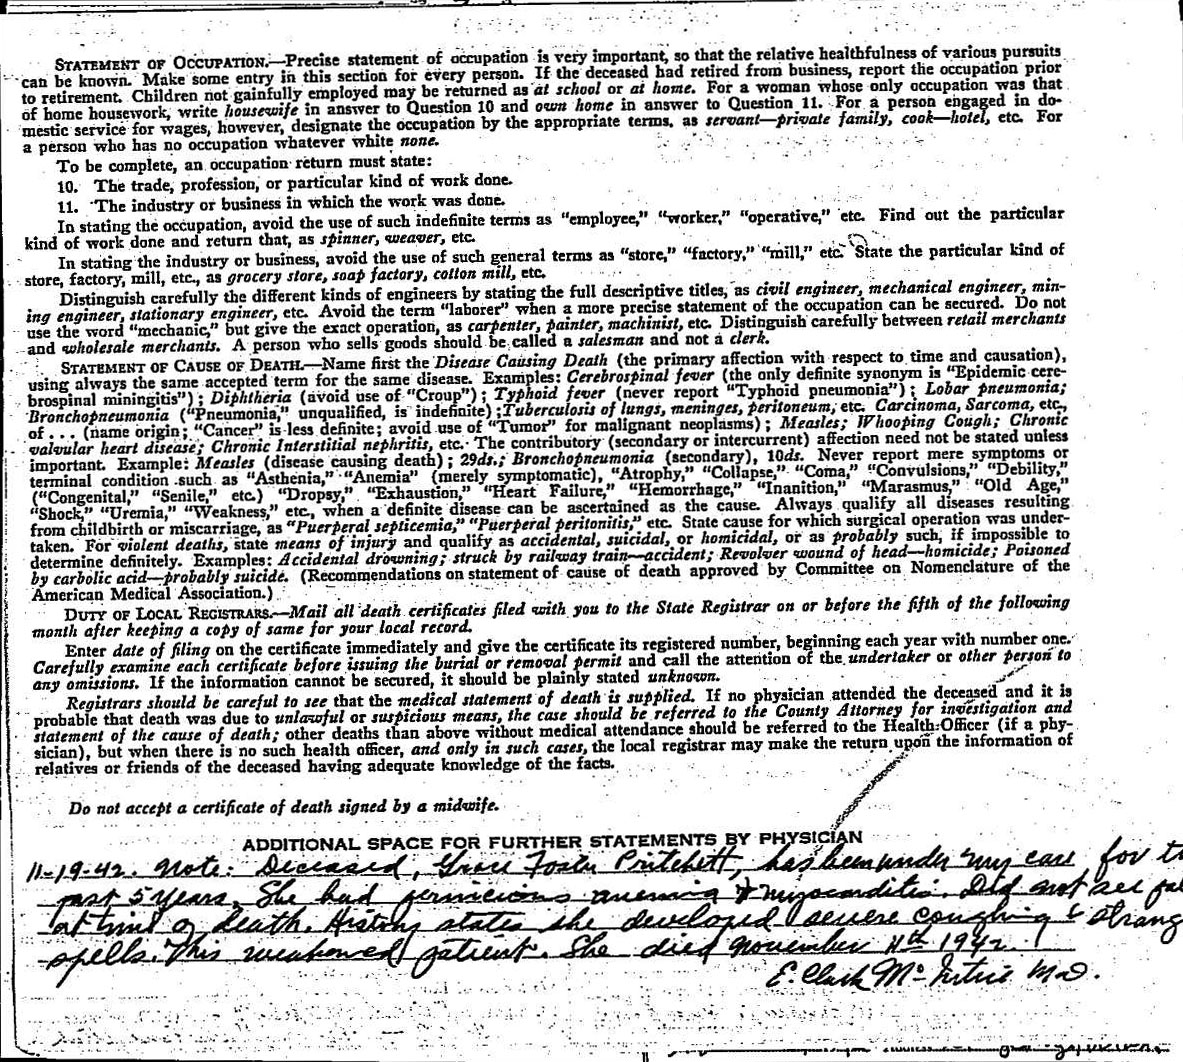 STATEMENT OF OCCUPATION.—Precise statement of occupation is very important, so that the relative healthfulness of various pursuits
can be known. Make some entry in this section for every person. If the deceased had retired from business, report the occupation prior
to retirement. Children not gainfully employed may be returned as at school or at home. For a woman whose only occupation was that
of home housework, write housewife in answer to Question 10 and own home in answer to Question 11. For a person engaged in do-
mestic service for wages, however, designate the occupation by the appropriate terms, as servant—private family, cook—hotel, etc. For
a person who has no occupation whatever white none.
To be complete, an occupation return must state:
10. The trade, profession, or particular kind of work done.
11. The industry or business in which the work was done.
In stating the occupation, avoid the use of such indefinite terms as "employee," "worker," "operative," etc. Find out the particular
kind of work done and return that, as spinner, weaver, etc.
In stating the industry or business, avoid the use of such general terms as "store," "factory," "mill," etc. State the particular kind of
store, factory, mill, etc., as grocery store, soap factory, cotton mill, etc.
Distinguish carefully the different kinds of engineers by stating the full descriptive titles, as civil engineer, mechanical engineer, min-
ing engineer, stationary engineer, etc. Avoid the term "laborer" when a more precise statement of the occupation can be secured. Do not
use the word "mechanic," but give the exact operation, as carpenter, painter, machinist, etc. Distinguish carefully between retail merchants
and wholesale merchants. A person who sells goods should be called a salesman and not a clerk.
STATEMENT OF CAUSE OF DEATH.—Name first the Disease Causing Death (the primary affection with respect to time and causation),
using always the same accepted term for the same disease. Examples: Cerebrospinal fever (the only definite synonym is "Epidemic cere-
brospinal miningitis"); Diphtheria (avoid use of "Croup"); Typhoid fever (never report "Typhoid pneumonia"); Lobar pneumonia;
Bronchopneumonia ("Pneumonia," unqualified, is indefinite); Tuberculosis of lungs, meninges, peritoneum, etc. Carcinoma, Sarcoma, etc.,
of . . . (name origin; "Cancer" is less definite; avoid use of "Tumor" for malignant neoplasms); Measles; Whooping Cough; Chronic
valvular heart disease; Chronic Interstitial nephritis, etc. The contributory (secondary or intercurrent) affection need not be stated unless
important. Example: Measles (disease causing death); 29ds.; Bronchopneumonia (secondary), 10ds. Never report mere symptoms or
terminal condition such as "Asthenia," "Anemia" (merely symptomatic), "Atrophy," "Collapse," "Coma," "Convulsions," "Debility,"
("Congenital," "Senile," etc.) "Dropsy," "Exhaustion," "Heart Failure," "Hemorrhage," "Inanition," "Marasmus," "Old Age,"
"Shock," "Uremia," "Weakness," etc., when a definite disease can be ascertained as the cause. Always qualify all diseases resulting
from childbirth or miscarriage, as "Puerperal septicemia," "Puerperal peritonitis," etc. State cause for which surgical operation was under-
taken. For violent deaths, state means of injury and qualify as accidental, suicidal, or homicidal, or as probably such, if impossible to
determine definitely. Examples: Accidental drowning; struck by railway train—accident; Revolver wound of head—homicide; Poisoned
by carbolic acid—probably suicide. (Recommendations on statement of cause of death approved by Committee on Nomenclature of the
American Medical Association.)
DUTY OF LOCAL REGISTRARS.—Mail all death certificates filed with you to the State Registrar on or before the fifth of the following
month after keeping a copy of same for your local record.
Enter date of filing on the certificate immediately and give the certificate its registered number, beginning each year with number one.
Carefully examine each certificate before issuing the burial or removal permit and call the attention of the undertaker or other person to
any omissions. If the information cannot be secured, it should be plainly stated unknown.
Registrars should be careful to see that the medical statement of death is supplied. If no physician attended the deceased and it is
probable that death was due to unlawful or suspicious means, the case should be referred to the County Attorney for investigation and
statement of the cause of death; other deaths than above without medical attendance should be referred to the Health Officer (if a phy-
sician), but when there is no such health officer, and only in such cases, the local registrar may make the return upon the information of
relatives or friends of the deceased having adequate knowledge of the facts.
Do not accept a certificate of death signed by a midwife.
ADDITIONAL SPACE FOR FURTHER STATEMENTS BY PHYSICIAN
11-19-42. Note: Deceased, Grace Foster Pritchett, has been under my care for
past 5 years. She had pernicious anemia & myocarditis. Did not see
at time of death. History states she developed severe coughing & strang
spells. This weakened patient. She died November 11th 1942.
E. Clark McIntire M.D.